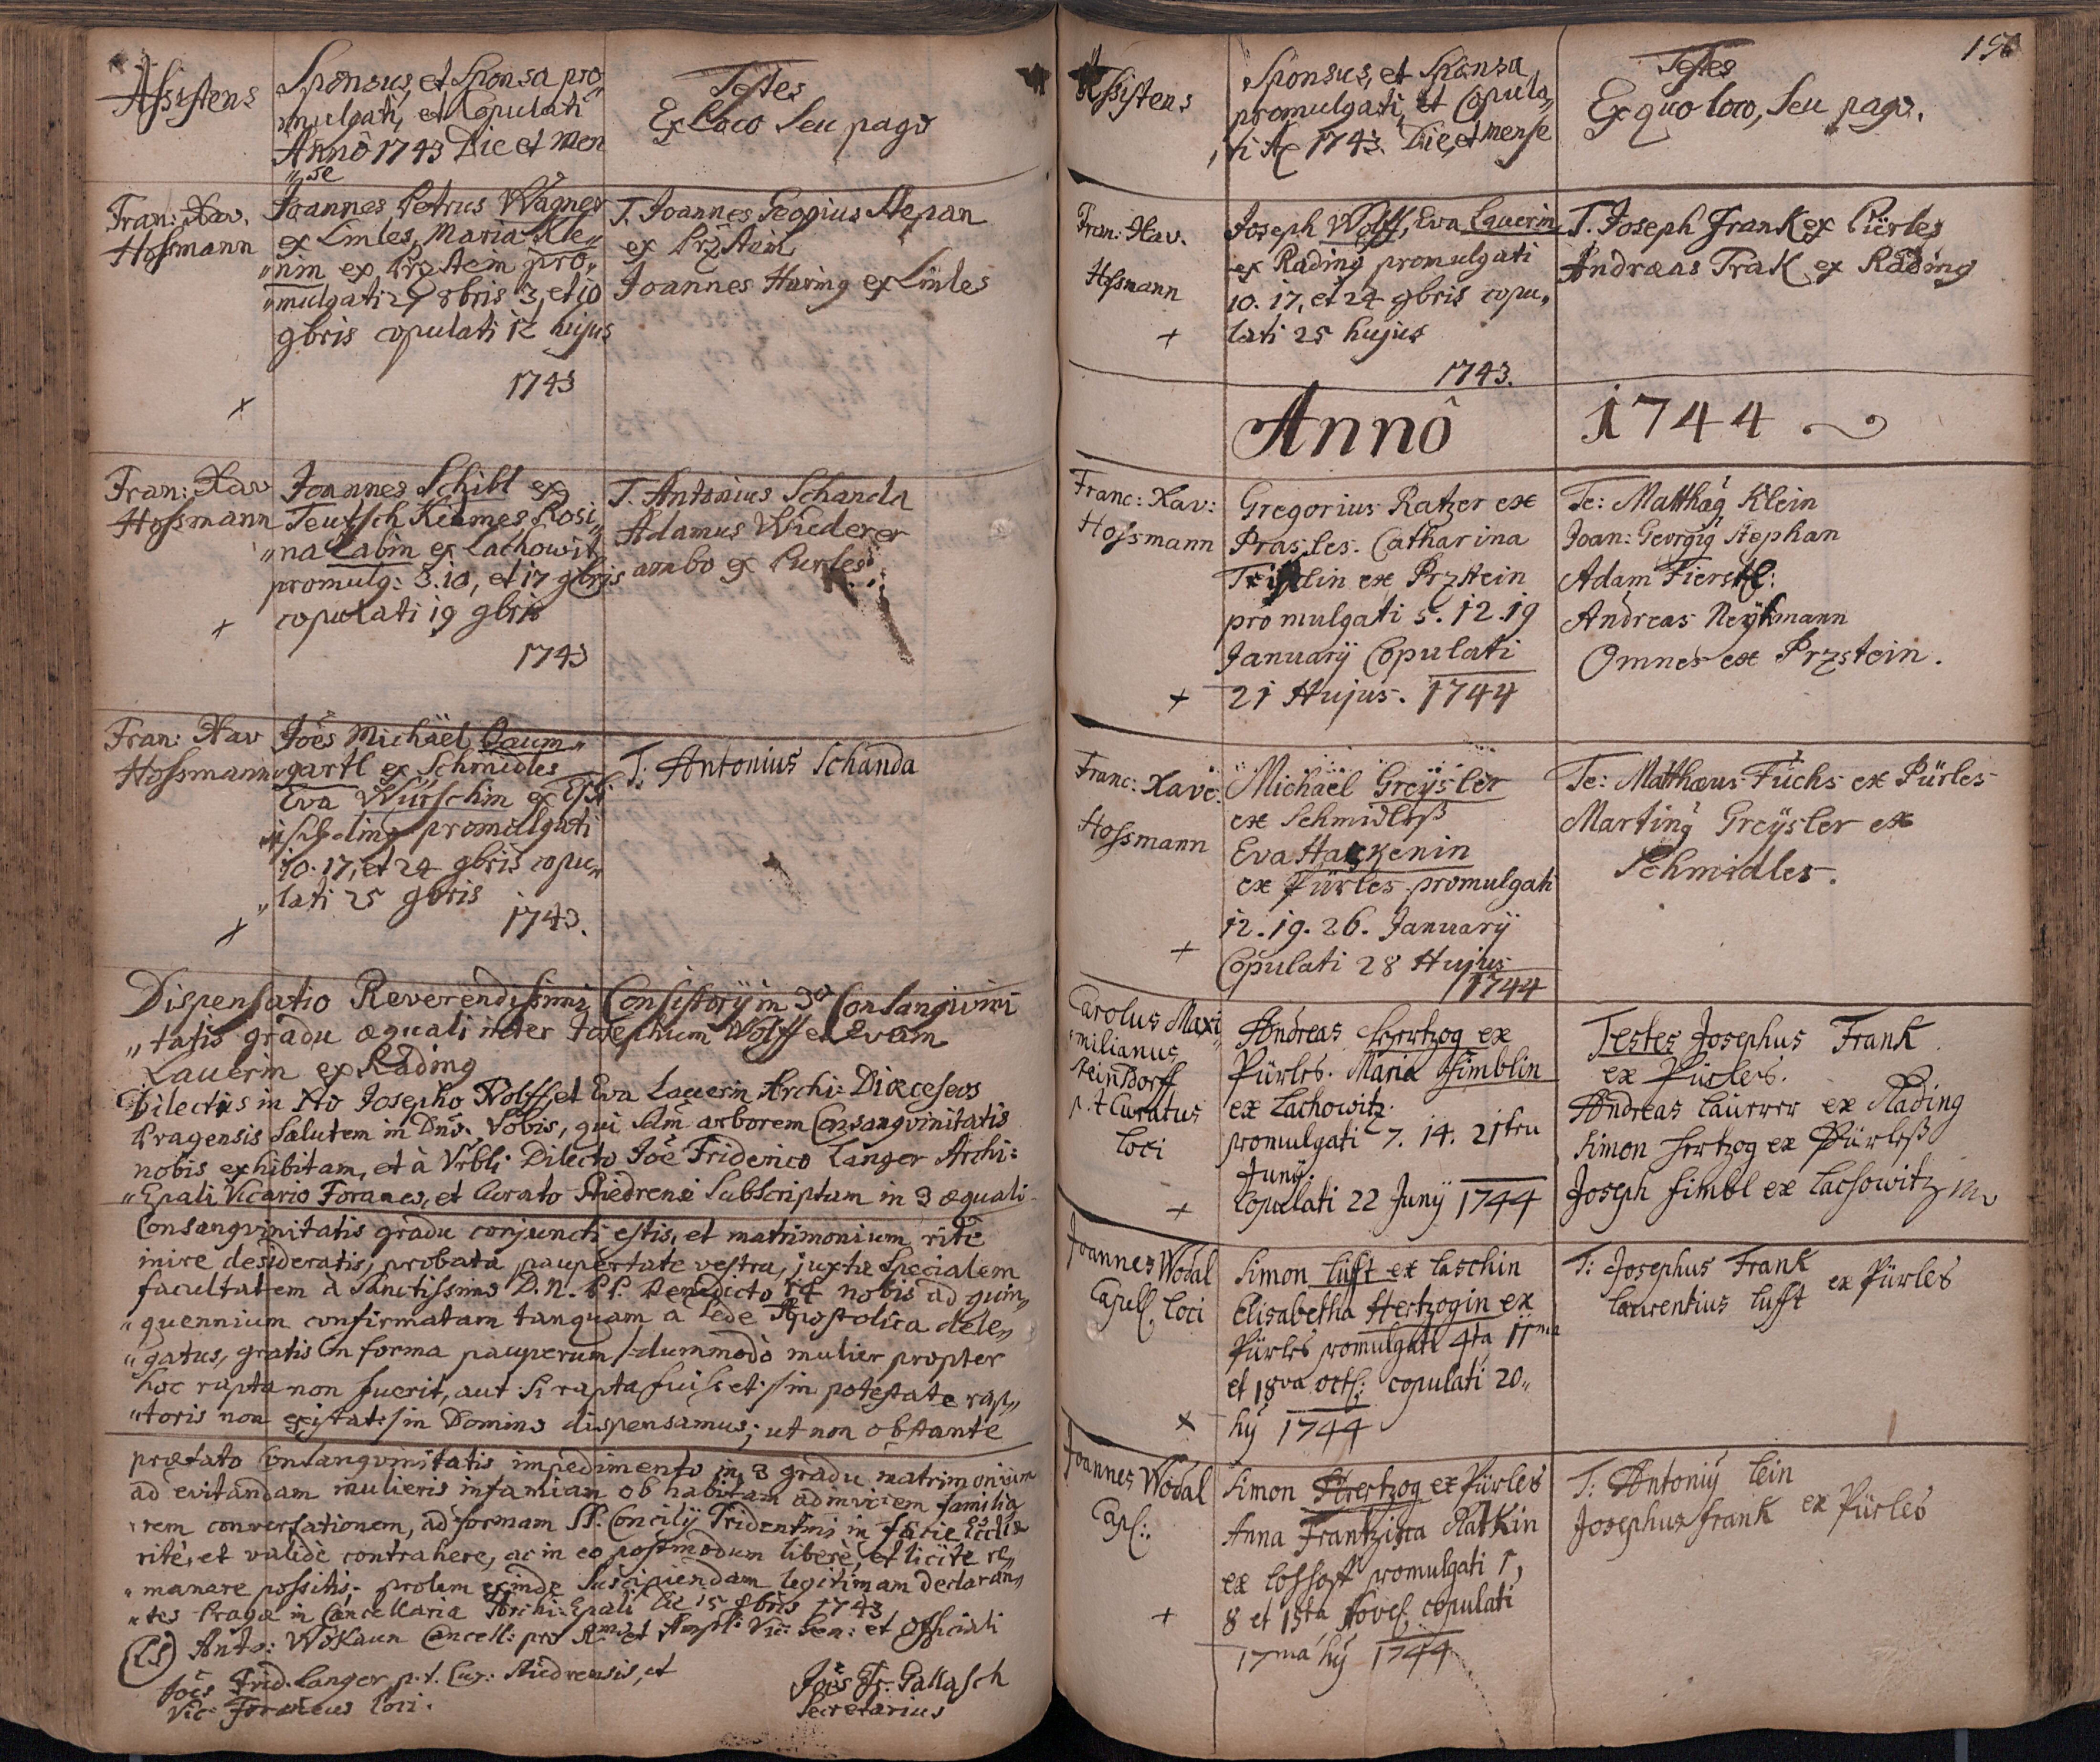 Assistens
Sponsus, et Sponsa pro„
mulgati, et Copulati
Annô 1743 Die et Men
„se
Testes
Ex Loco Seu pago
Fran: Xav.
Hossmann
Joannes Petrus Wagner
ex Linles, Maria Kle„
„nin ex Przstein pro„
„mulgati 27 8bris 3, et 10
9bris copulati 12 hujus
1743
T. Joannes Georgius Stepan
ex Przstein
Joannes Haring ex Linles
Fran: Xav
Hossmann
Joannes Schibl ex
Teutsch Kilmes Rosi„
„na Labin ex Lachowitz
promulg: 3. 10, et 17 9bris
copulati 19 9bris
1743
T. Antonius Schanda
Adamus Wiederer
ambo ex Purles
Fran: Xav
Hossmann
Joês Michael Baum„
„gartl ex Schmidles
Eva Würschin ex
promulgati
10. 17, et 24 9bris copu„
„lati 25 9bris
1743.
T: Antonius Schanda
Dispensatio Reverendissimi Consistorij in 3o Consangvini
„tatis gradu æquali inter Josephum Wolff et Evam
Lauerin ex Rading
Dilectis in Xto Josepho Wolff, et Eva Lauerin Archi: Diœceseos
Pragensis Salutem in Dnô. Vobis, qui Sâm arborem Consangvinitatis
nobis exhibitam, et à Vrbli Dilecto Joê Friderico Langer Archi:
„Epali Vicario Foraneo, et Curato Stiedrensi Subscriptam in 3 æquali
Consangvinitatis gradu conjuncti estis, et matrimonium ritè
inire desideratis, probata paupertate vestra, juxta Specialem
facultatem à Sanctissimo D. N. PP. Benedicto 14 nobis ad quin„
„quennium confirmatam tanquam a Sede Apostolica dele„
„gatus, gratis in forma pauperum /:dummodò mulier propter
hoc rapta non fuerit, aut si rapta fuisset :/ in potestate rap„
„toris non existat:/ in Domino dispensamus; ut non obstante
præfato Consangvinitatis impedimento in 3 gradu matrimonium
ad evitandam mulieris infamiam ob habitam adinvicem familia
rem conversationem, ad formam SS. Concilij Tridentini in facie Ecclesiæ
ritè, et validè contrahere, ac in eo postmodum liberè, et licitè re„
„manare possitis; prolem exinde suscipiendam legitimam declaran„
„tes Pragæ in Cancellaria Archi: Epali die 15 9bris 1743
(LS) Anto: Wokaun Cancell: pro Rmo et Ampl: Vic: Gen: et Officiali
Joês Frid. Langer p. t. Cur: Stiedrensis, et
Vic: Foraneus loci.
Joês Fr. Gallasch
Secretarius
Assistens
Sponsus, et Sponsa
promulgati, et Copula„
„ti Ao 1743. Die, et Mense
Testes
Ex quo loco, Seu pago.
Fran: Xav.
Hossmann
Joseph Wolff, Eva Lauerin
ex Rading promulgati
10. 17, et 24 9bris copu„
lati 25 hujus
1743.
T. Joseph Frank ex Pürles
Andreas Trak ex Rading
Annô 1744
Franc: Xav:
Hossmann
Gregorius Ratzer ex
Prasles. Catharina
ex Przstein
promulgati 5. 12. 19
Januarÿ Copulati
21 Hujus. 1744
Te: Matthæg Klein
Joan: Georgig Stephan
Adam Fierstl:
Andreas Neÿkmann
Omnes ex Przstein.
Franc: Xave:
Hossmann
Michael Greÿsler
ex Schmidleß
Eva Hackenin
ex Pürles promulgati
12. 19. 26. Januarÿ
Copulati 28 Hujus
1744
Te: Matthæus Fuchs ex Pürles
Marting Greÿsler ex
Schmidles.
Carolus Maxi„
„milianus
Steindorff
p. t. Curatus
Loci
Andreas Hertzog ex
Pürles. Maria Simblin
ex Lachowitz.
promulgati 7. 14. 21
Junÿ.
Copulati 22 Junÿ 1744
Testes Josephus Frank
ex Pürles.
Andreas Lauerer ex Rading
Simon Hertzog ex Pürleß
Joseph Simbl ex Lachowitz
Joannes Wodal
Capell. loci
Simon Lufft ex Laschin
Elisabetha Hertzogin ex
Pürles promulgati 4ta 11ma
et 18va octb: copulati 20„
hÿ 1744
T: Josephus Frank
Laurentius Lufft ex Pürles
Joannes Wodal
Cap:
Simon Hertzog ex Pürles
Anna Frantzisca Ratkin
ex promulgati 1,
8 et 15ta Nove copulati
17ma hÿ 1744
T: Antonÿ Lein
Josephus Frank ex Pürles